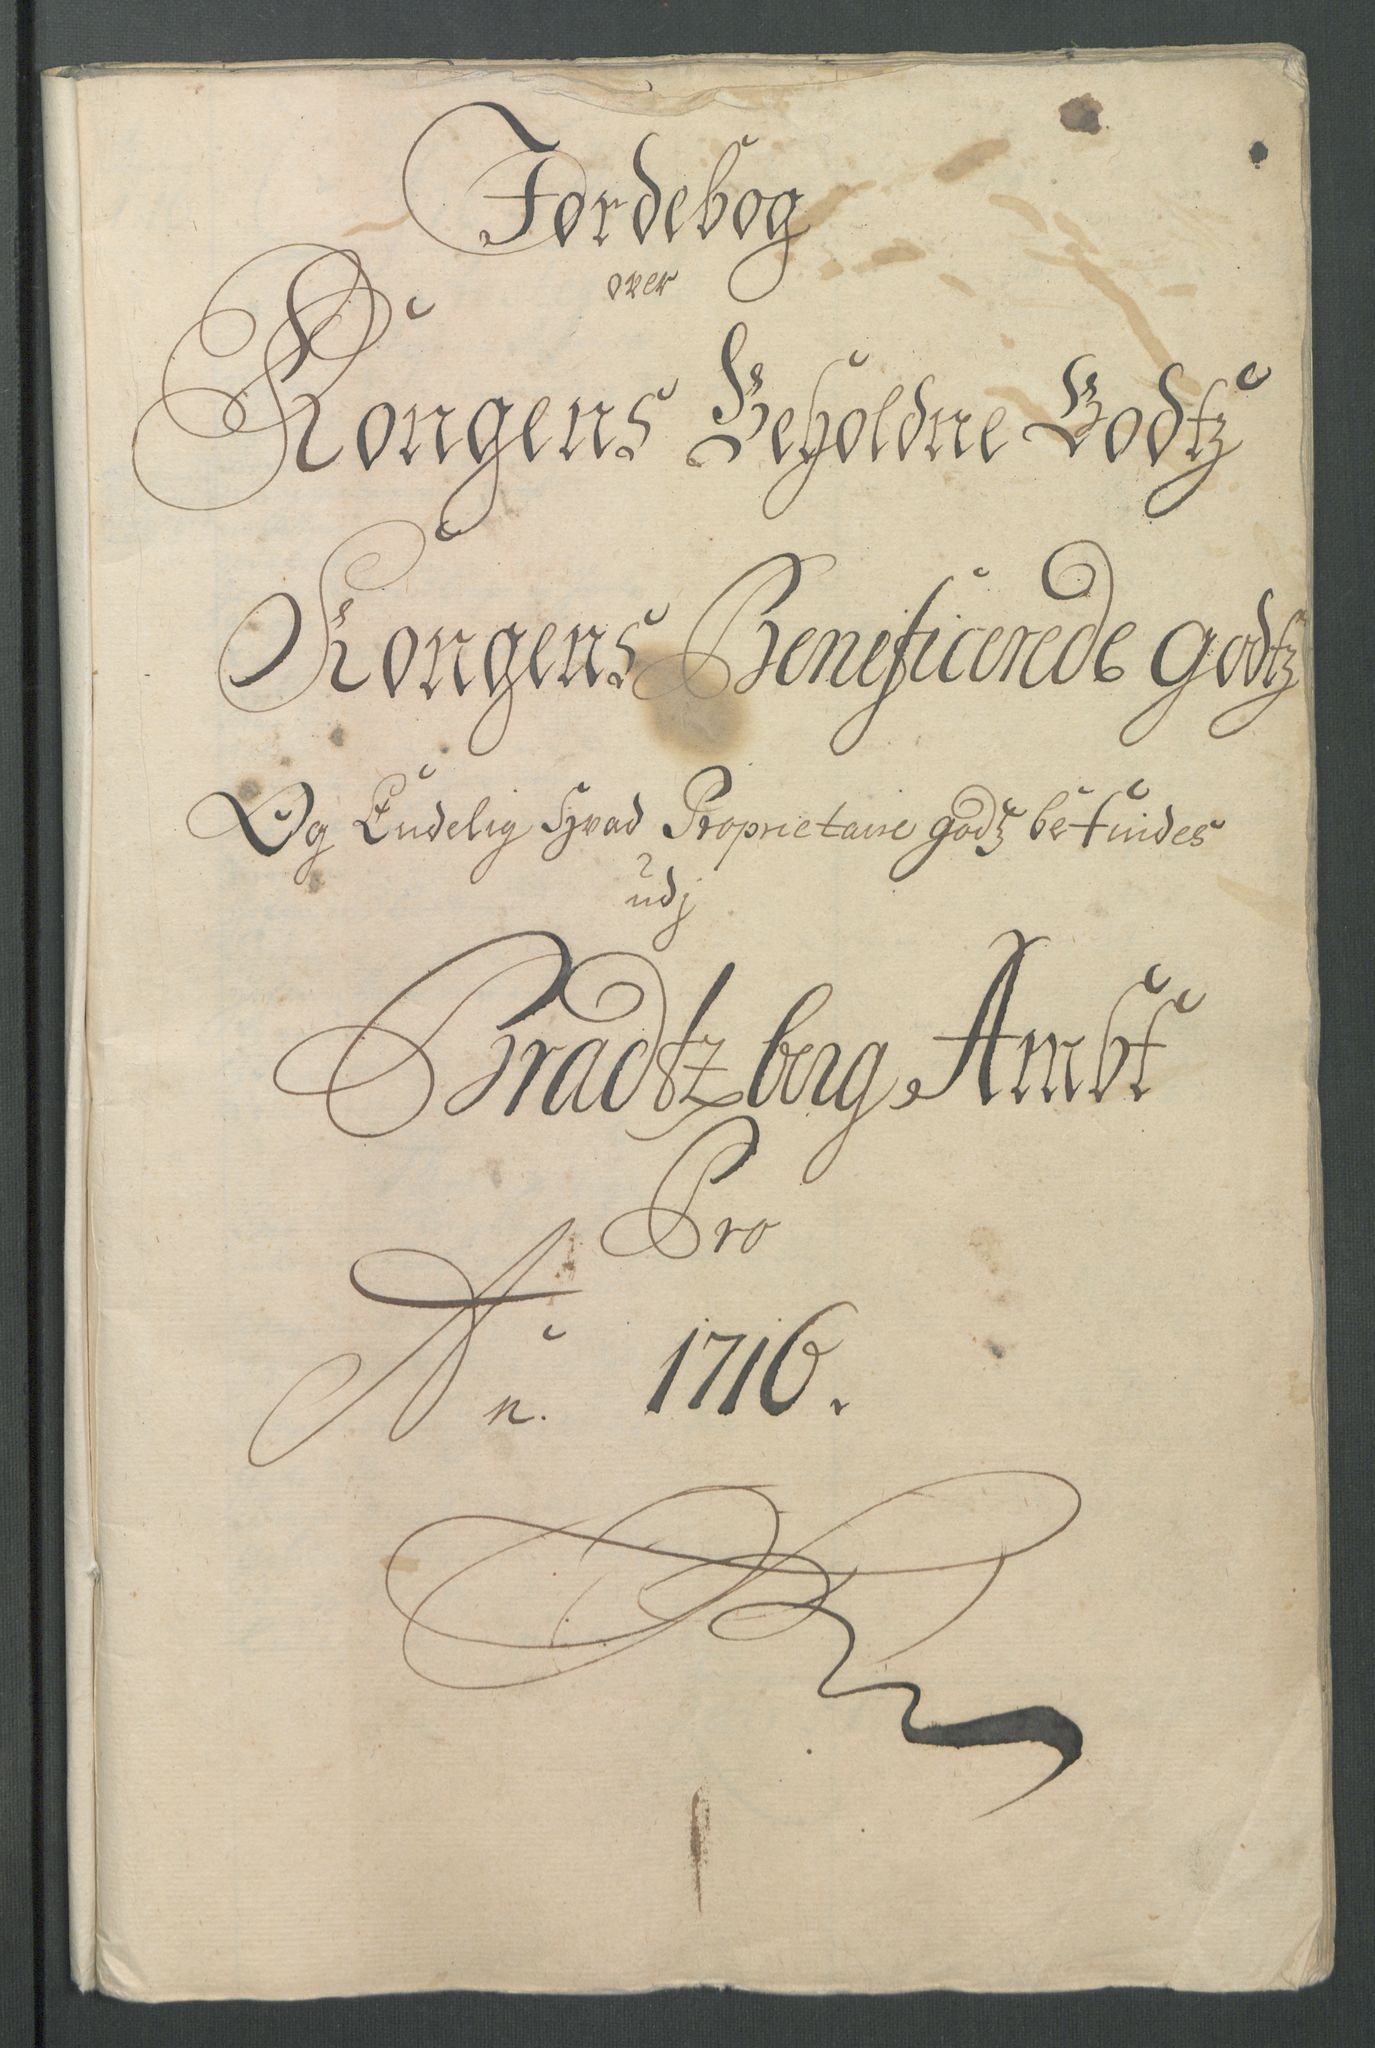 Jordebog
over
Kongens Beholdne Godtz
Kongens Beneficerede godtz
Og Endelig Hvad Proprietaire godtz befindes
udj
Bradtzberg Ambt
Pro
An. 1716.